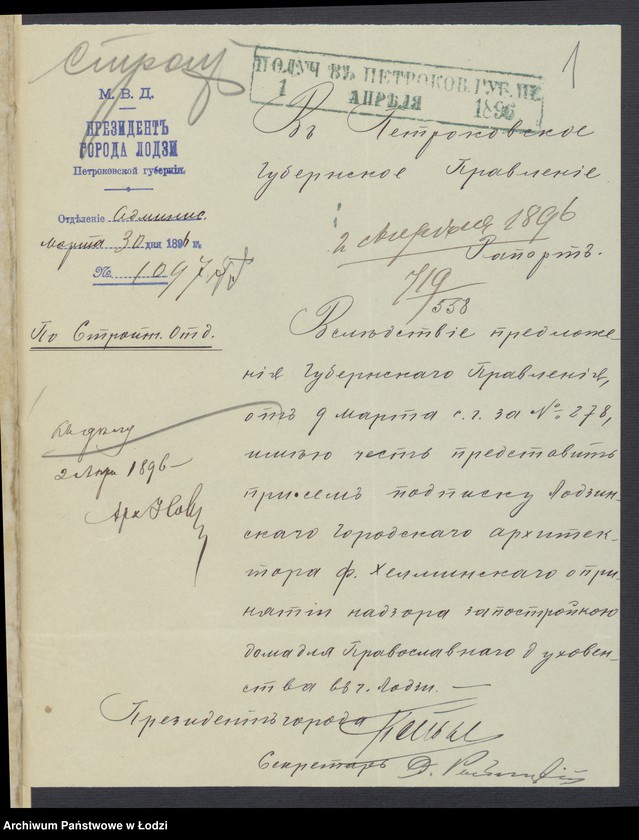 Строит
1
ПОЛУЧ. ВЪ ПЕТРОКОВ. ГУБ. ПР.
1 АПРѢЛЯ 1896
М. В. Д.
ПРЕЗИДЕНТЪ
ГОРОДА ЛОДЗИ
Петроковской губерніи.
Отдѣленіе Админис.
Марта 30 дня 1896 г.
№ 1097
По Строит. Отд.
Къ дѣлу
2 Апр 1896
Въ Петроковское
Губернское Правленіе
2 апрѣля 1896
Рапортъ.
719/558
Вслѣдствіе предложе-
нія Губернскаго Правленія,
отъ 9 Марта с. г. за № 278,
имѣю честь представить
при семъ подписку Лодзин-
скаго Городскаго архитек-
тора Ф. Хелминскаго о при-
нятіи надзора за постройкою
дома для Православнаго духовен-
ства въ г. Лодзи. —
Президентъ города
Секретарь
Archiwum Państwowe w Łodzi